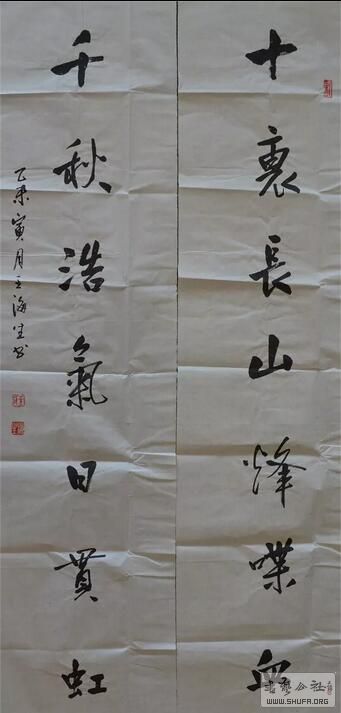 十裏長山烽喋血
千秋浩氣日貫虹
乙未寅月王海生书
书艺公社
WWW.SHUFA.ORG